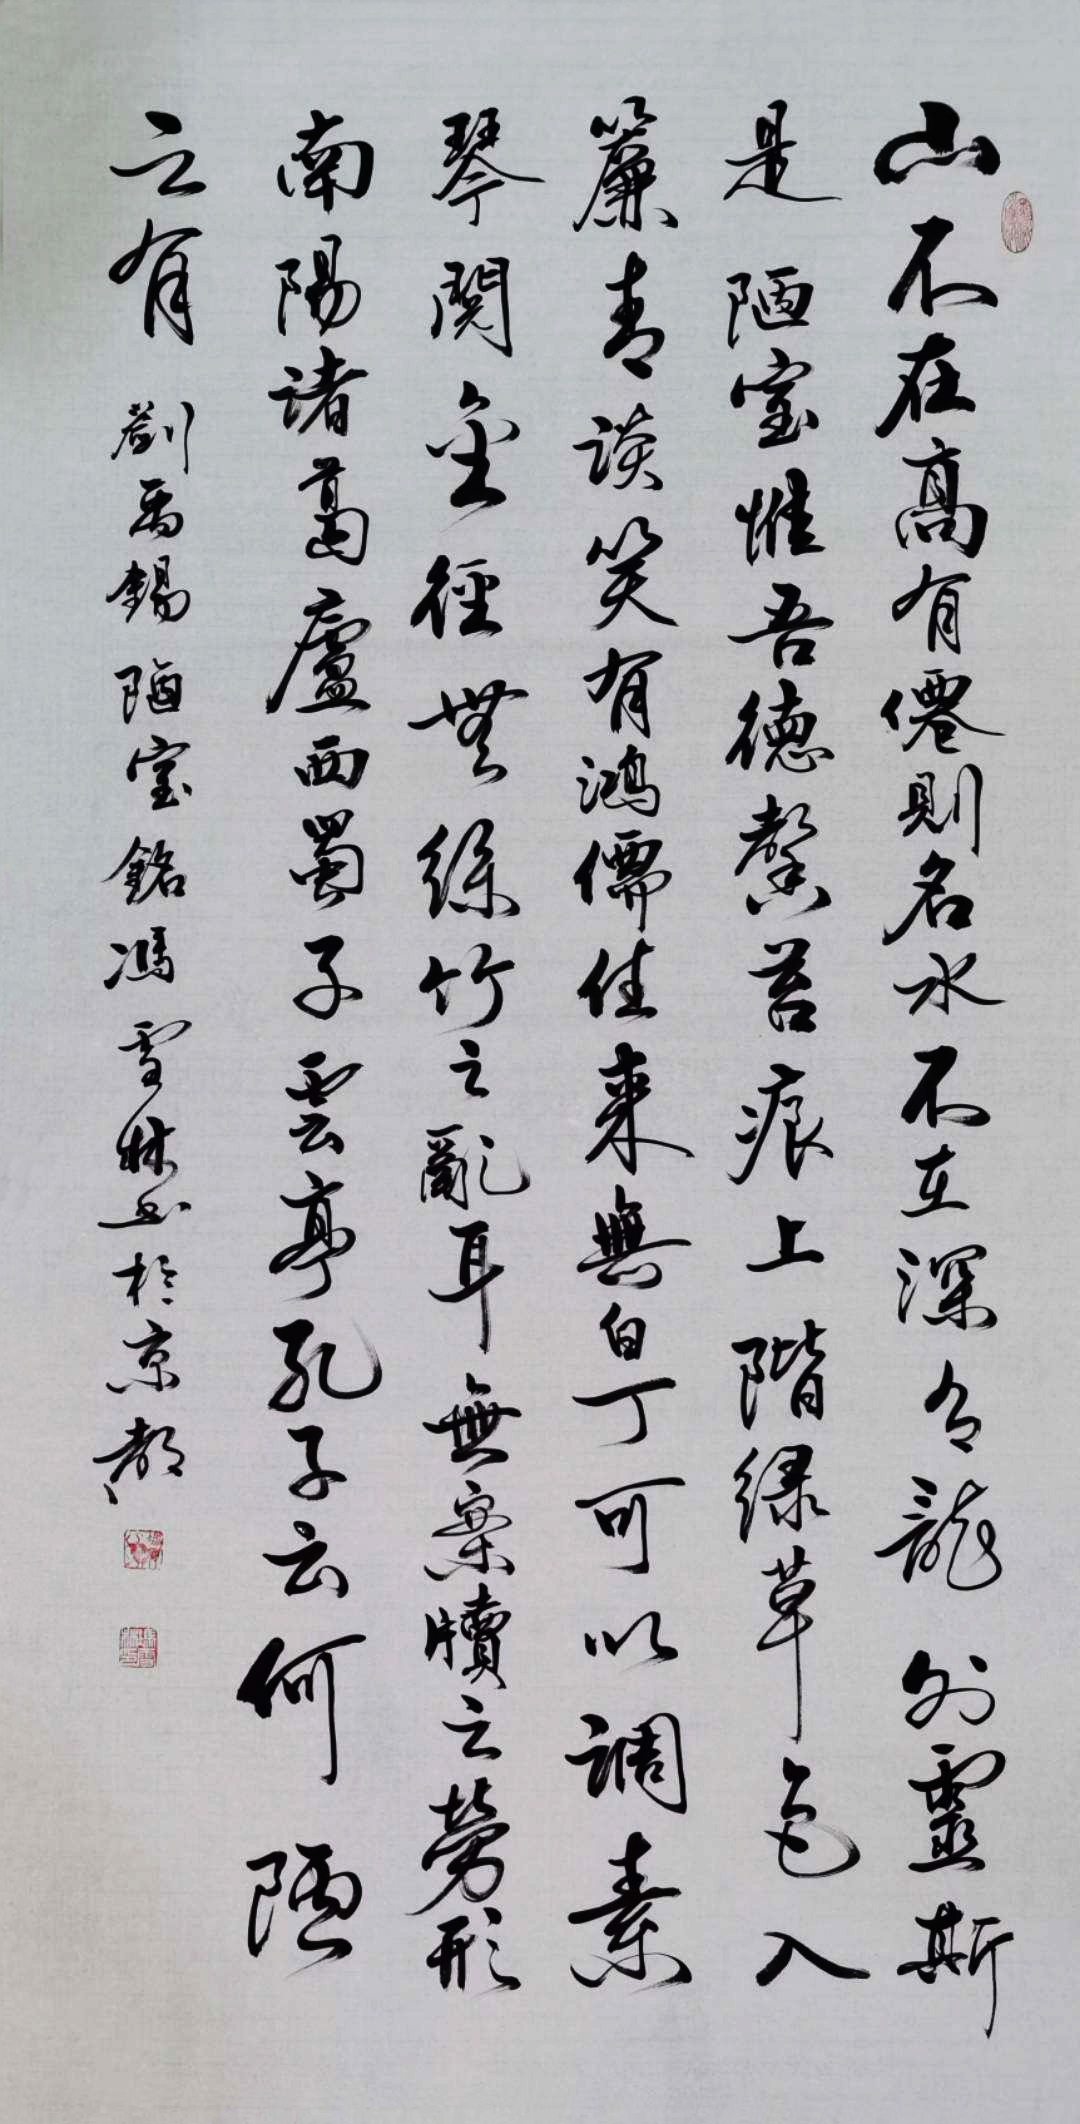 山不在高有僊則名水不在深有龍則靈斯
是陋室惟吾德馨苔痕上階绿草色入
簾青談笑有鴻儒往来無白丁可以調素
琴閱金徑無絲竹之亂耳無案牘之勞形
南陽諸葛廬西蜀子雲亭孔子云何陋
之有 劉禹錫陋室銘馮雪林书於京都